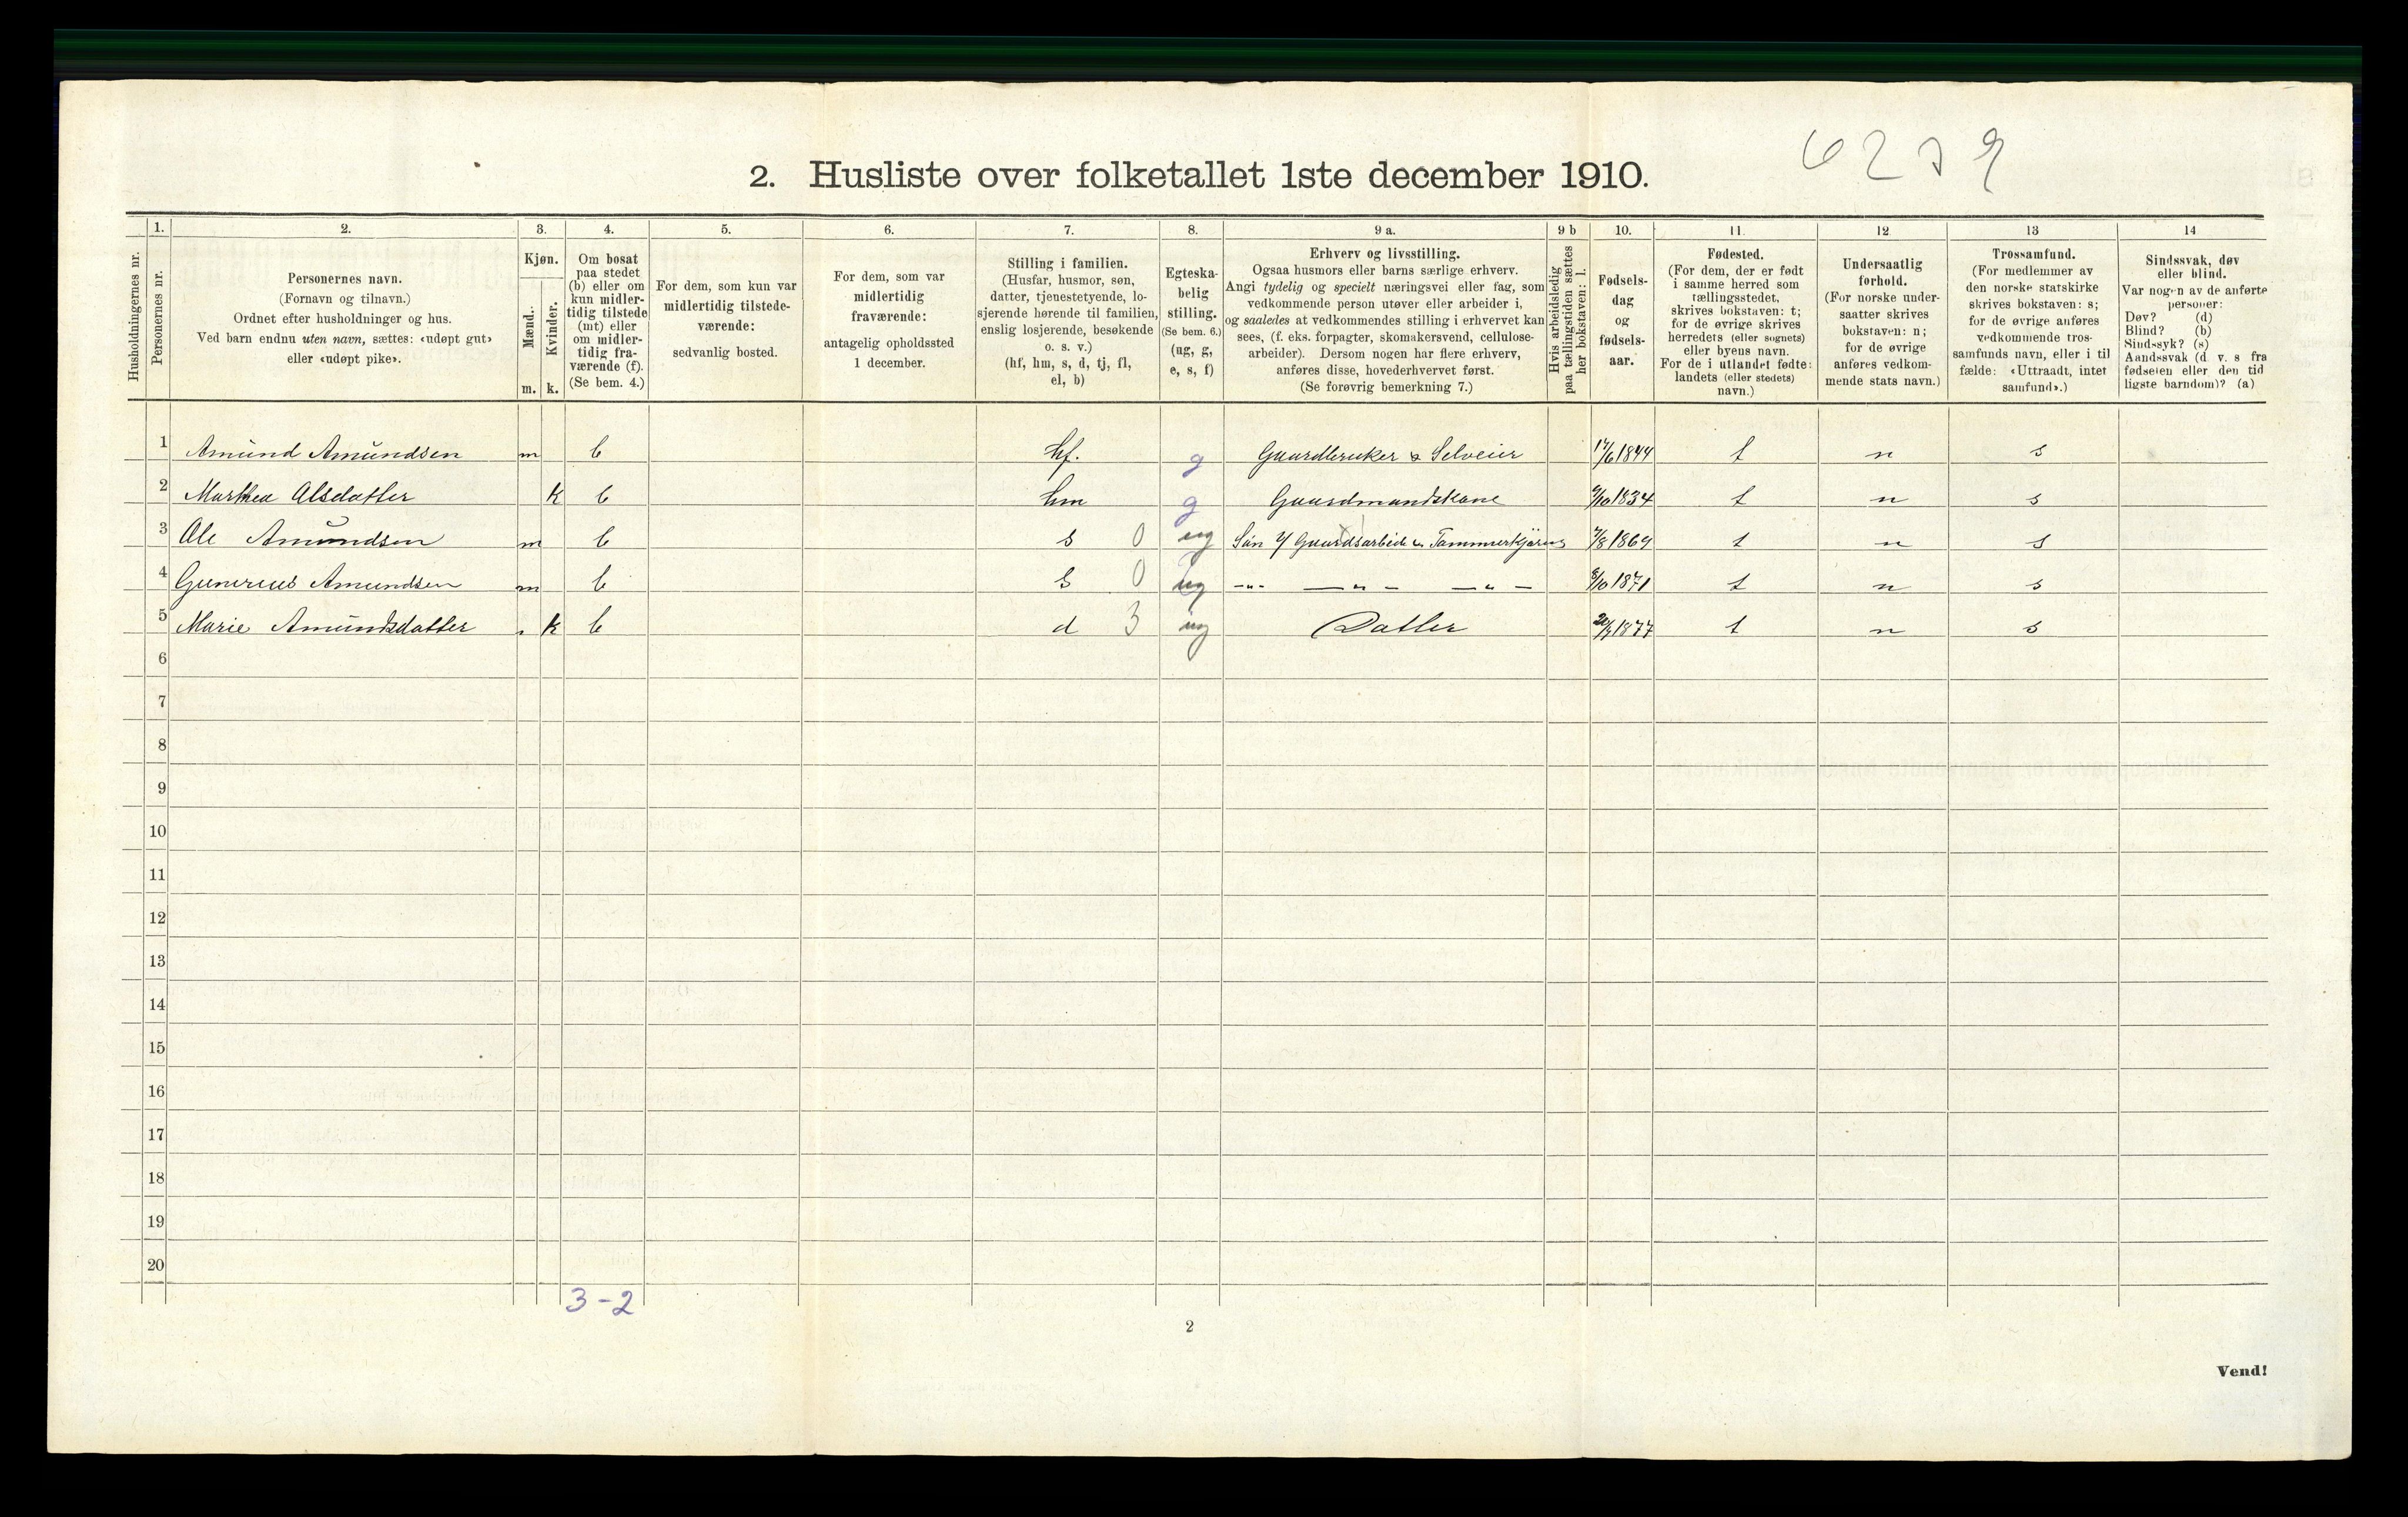 6239
2. Husliste over folketallet 1ste december 1910.
Husholdningernes nr.
1.
Personernes nr.
2.
Personernes navn.
(Fornavn og tilnavn.)
Ordnet efter husholdninger og hus.
Ved barn endnu uten navn, sættes: «udøpt gut»
eller «udøpt pike».
3.
Kjøn.
Mænd.
Kvinder.
m. k.
4.
Om bosat
paa stedet
(b) eller om
kun midler-
tidig tilstede
(mt) eller
om midler-
tidig fra-
værende (f).
(Se bem. 4.)
5.
For dem, som kun var
midlertidig tilstede-
værende:
sedvanlig bosted.
6.
For dem, som var
midlertidig
fraværende:
antagelig opholdssted
1 december.
7.
Stilling i familien.
(Husfar, husmor, søn,
datter, tjenestetyende, lo-
sjerende hørende til familien,
enslig losjerende, besøkende
o. s. v.)
(hf, hm, s, d, tj, fl,
el, b)
8.
Egteska-
belig
stilling.
(Se bem. 6.)
(ug, g,
e, s, f)
9 a.
Erhverv og livsstilling.
Ogsaa husmors eller barns særlige erhverv.
Angi tydelig og specielt næringsvei eller fag, som
vedkommende person utøver eller arbeider i,
og saaledes at vedkommendes stilling i erhvervet kan
sees, (f. eks. forpagter, skomakersvend, cellulose-
arbeider). Dersom nogen har flere erhverv,
anføres disse, hovederhvervet først.
(Se forøvrig bemerkning 7.)
9 b
Hvis arbeidsledig
paa tællingstiden sættes
her bokstaven: l.
10.
Fødsels-
dag
og
fødsels-
aar.
11.
Fødested.
(For dem, der er født
i samme herred som
tællingsstedet,
skrives bokstaven: t;
for de øvrige skrives
herredets (eller sognets)
eller byens navn.
For de i utlandet fødte:
landets (eller stedets)
navn.)
12
Undersaatlig
forhold.
(For norske under-
saatter skrives
bokstaven: n;
for de øvrige
anføres vedkom-
mende stats navn.)
13
Trossamfund.
(For medlemmer av
den norske statskirke
skrives bokstaven: s;
for de øvrige anføres
vedkommende tros-
samfunds navn, eller i til
fælde: «Uttraadt, intet
samfund».)
14
Sindssvak, døv
eller blind.
Var nogen av de anførte
personer:
Døv? (d)
Blind? (b)
Sindssyk? (s)
Aandssvak (d. v. s fra
fødselen eller den tid
ligste barndom)? (a)
1 Amund Amundsen m b hf. g Gaardbruker & Selveier 17/6 1844 t n s
2 Marthea Olsdatter k b hm g Gaardmandskone 9/10 1834 t n s
3 Ole Amundsen m b s 0 ug Sön Gaardsarbeide Tømmerkjöring 7/8 1869 t n s
4 Gunerius Amundsen m b s 0 ug -"- -"- -"- 8/10 1871 t n s
5 Marie Amundsdatter k b d 3 ug Datter 1877 t n s
6
7
8
9
10
11
12
13
14
15
16
17
18
19
20
3-2
2
Vend!